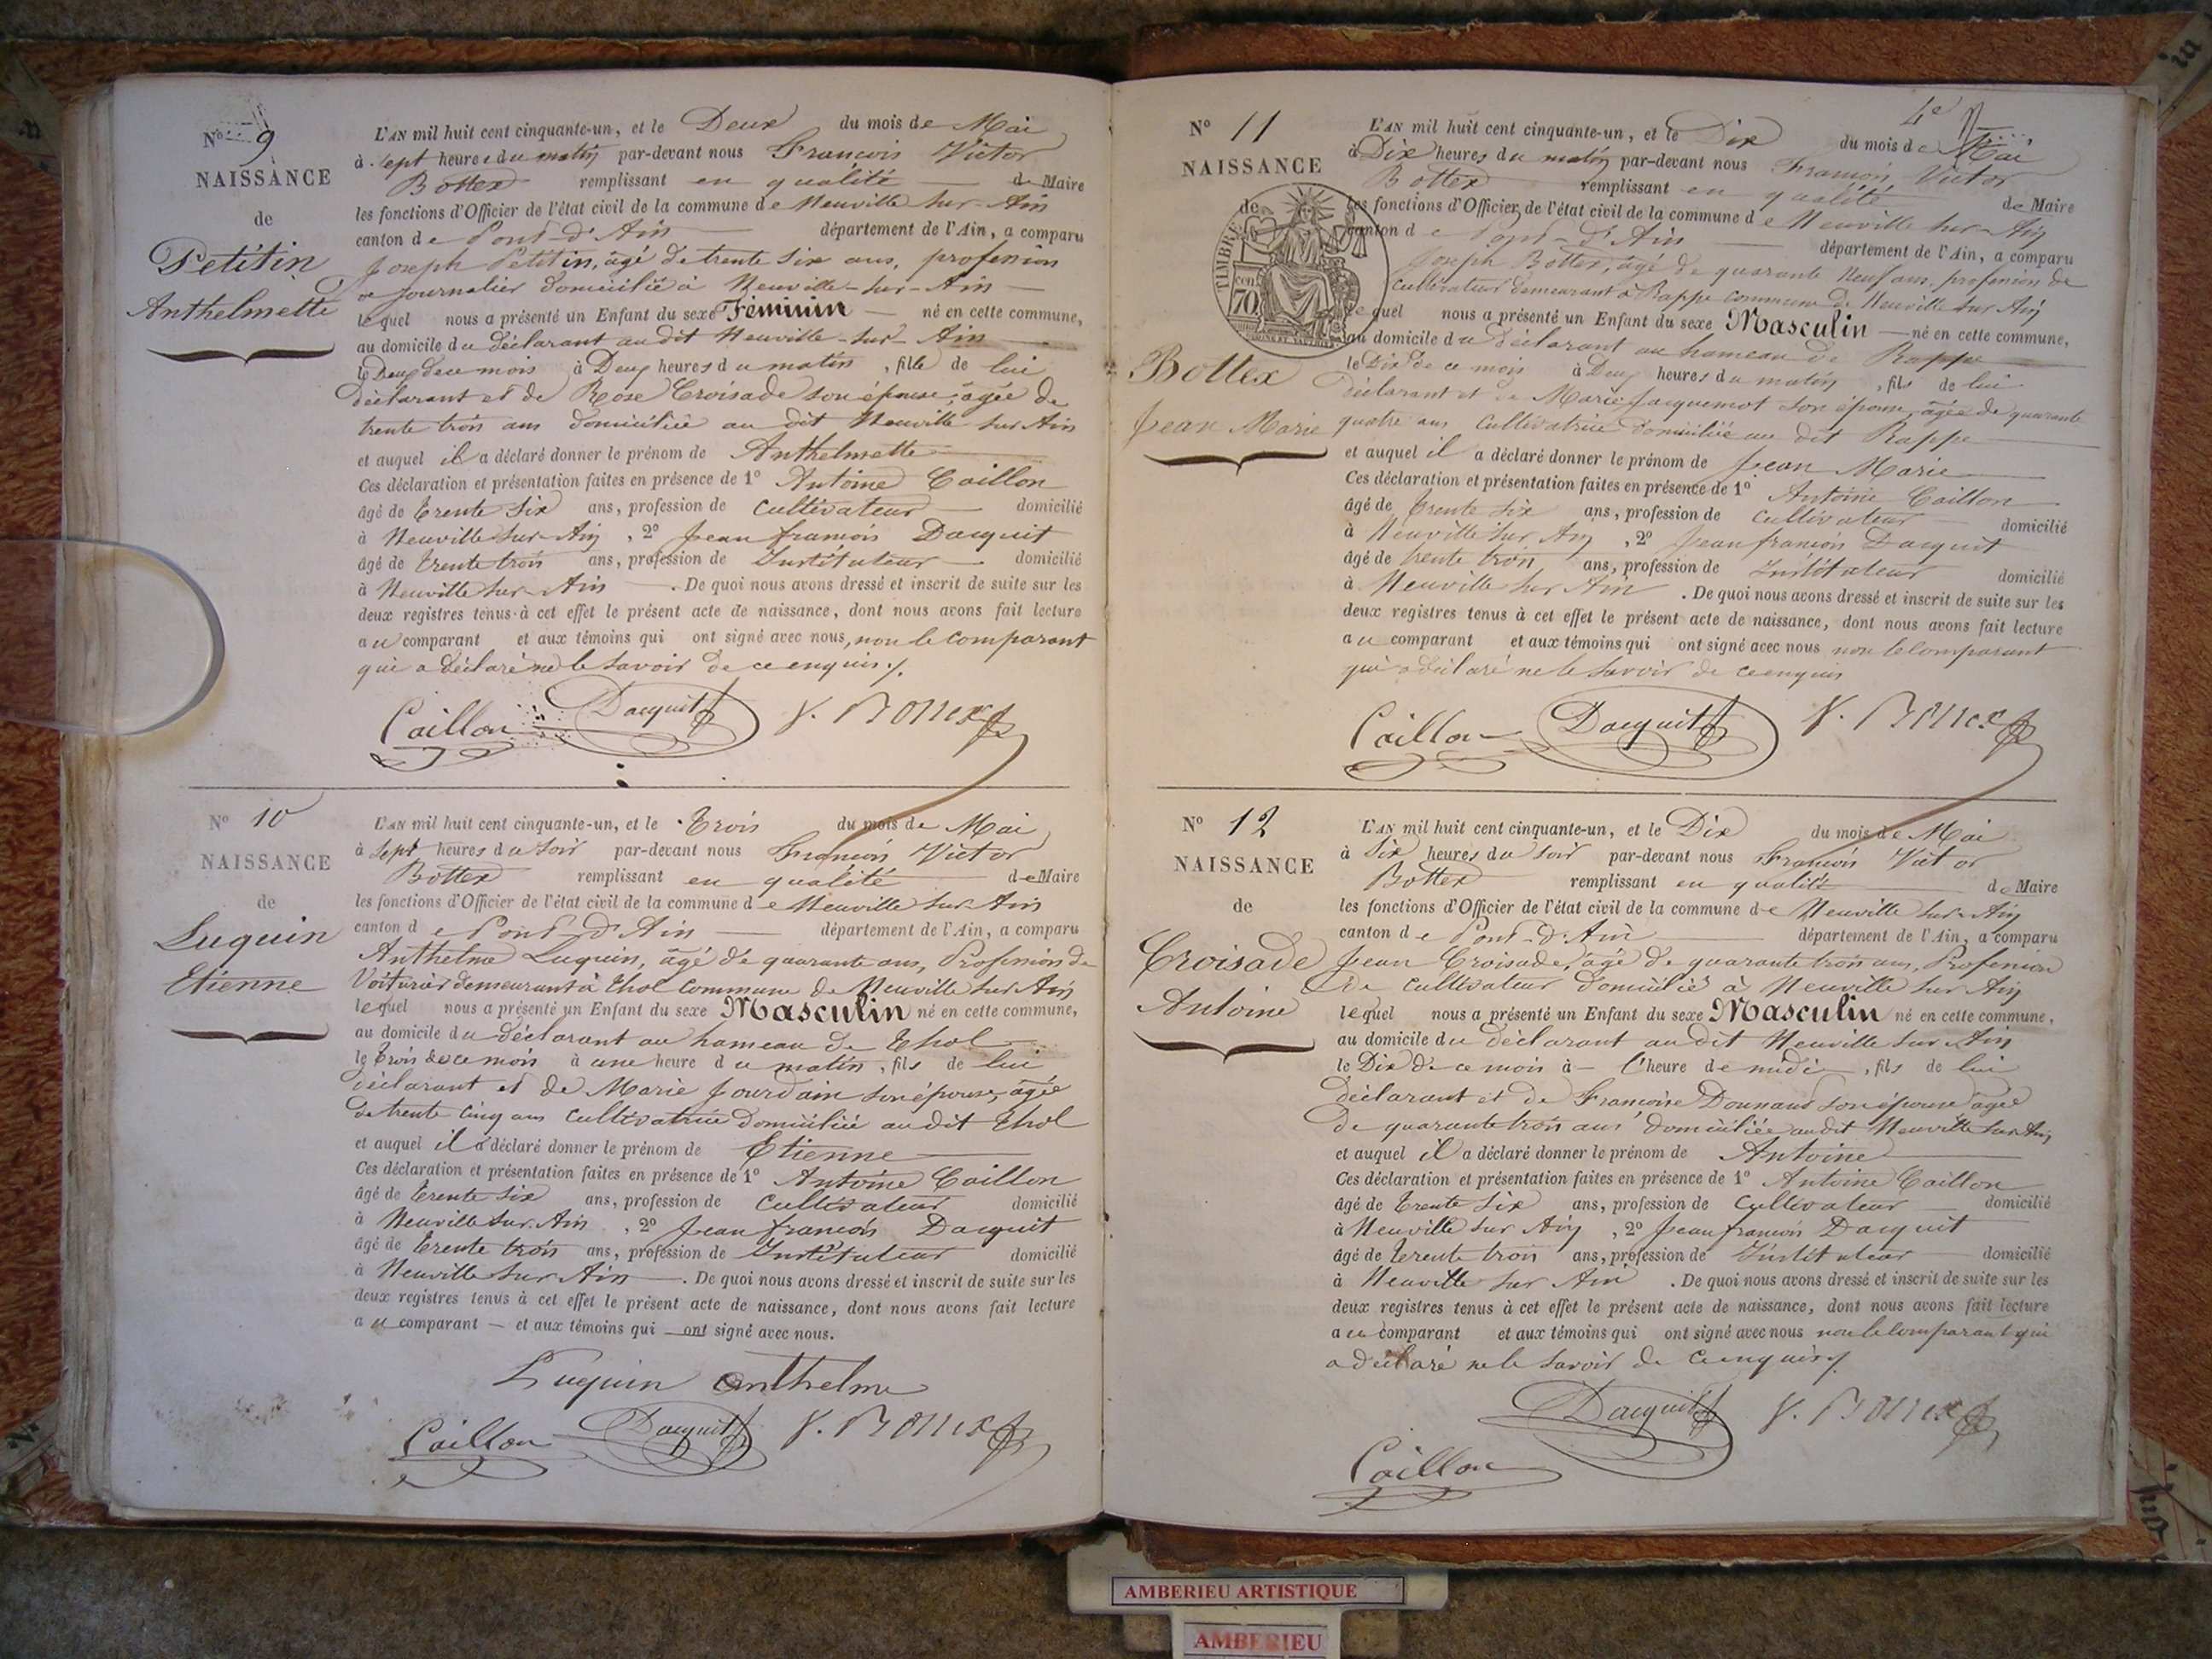 N° 9
NAISSANCE
de
Petitin
Anthelmette
L'AN mil huit cent cinquante-un, et le Deux du mois de Mai
à sept heures du matin par-devant nous François Victor
Bottex remplissant en qualité de Maire
les fonctions d'Officier de l'état civil de la commune de Neuville sur Ain
canton de Pont-d'Ain département de l'Ain, a comparu
Joseph Petitin, âgé de trente six ans, profession
de journalier domicilié à Neuville-sur-Ain
lequel nous a présenté un Enfant du sexe Féminin né en cette commune,
au domicile du déclarant au dit Neuville-sur-Ain
le Deux de ce mois à Deux heures du matin, fille de lui
déclarant et de Rose Croisade son épouse, âgée de
trente trois ans domiciliée au dit Neuville sur Ain
et auquel il a déclaré donner le prénom de Anthelmette
Ces déclaration et présentation faites en présence de 1° Antoine Caillon
âgé de trente six ans, profession de cultivateur domicilié
à Neuville sur Ain, 2° Jean françois Dacquit
âgé de trente trois ans, profession de Instituteur domicilié
à Neuville sur Ain. De quoi nous avons dressé et inscrit de suite sur les
deux registres tenus à cet effet le présent acte de naissance, dont nous avons fait lecture
au comparant et aux témoins qui ont signé avec nous, non le comparant
qui a déclaré ne le savoir de ce enquis ./.
Caillon Dacquit V. Bottex
N° 10
NAISSANCE
de
Luquin
Etienne
L'AN mil huit cent cinquante-un, et le Trois du mois de Mai
à sept heures du soir par-devant nous François Victor
Bottex remplissant en qualité de Maire
les fonctions d'Officier de l'état civil de la commune de Neuville sur Ain
canton de Pont-d'Ain département de l'Ain, a comparu
Anthelme Luquin, âgé de quarante ans, Profession de
Voiturier demeurant à Thol commune de Neuville sur Ain
lequel nous a présenté un Enfant du sexe Masculin né en cette commune,
au domicile du déclarant au hameau de Thol
le trois de ce mois à une heure du matin, fils de lui
déclarant et de Marie Jourdain son épouse, âgée
de trente cinq ans cultivatrice domiciliée au dit Thol
et auquel il a déclaré donner le prénom de Etienne
Ces déclaration et présentation faites en présence de 1° Antoine Caillon
âgé de trente six ans, profession de cultivateur domicilié
à Neuville sur Ain, 2° Jean françois Dacquit
âgé de trente trois ans, profession de Instituteur domicilié
à Neuville sur Ain. De quoi nous avons dressé et inscrit de suite sur les
deux registres tenus à cet effet le présent acte de naissance, dont nous avons fait lecture
au comparant et aux témoins qui ont signé avec nous.
Luquin anthelme
Caillon Dacquit V. Bottex
4e
N° 11
NAISSANCE
de
TIMBRE
70
Bottex
Jean Marie
L'AN mil huit cent cinquante-un, et le Dix du mois de Mai
à Dix heures du matin par-devant nous François Victor
Bottex remplissant en qualité de Maire
les fonctions d'Officier de l'état civil de la commune de Neuville sur Ain
canton de Pont-d'Ain département de l'Ain, a comparu
Joseph Bottex, âgé de quarante neuf ans, profession de
cultivateur demeurant à Rappe commune de Neuville sur Ain
lequel nous a présenté un Enfant du sexe Masculin né en cette commune,
au domicile du déclarant au hameau de Rappe
le Dix de ce mois à Deux heures du matin, fils de lui
déclarant et de Marie Jacquemot son épouse, âgée de quarante
quatre ans cultivatrice domiciliée au dit Rappe
et auquel il a déclaré donner le prénom de Jean Marie
Ces déclaration et présentation faites en présence de 1° Antoine Caillon
âgé de trente six ans, profession de cultivateur domicilié
à Neuville sur Ain, 2° Jean françois Dacquit
âgé de trente trois ans, profession de Instituteur domicilié
à Neuville sur Ain. De quoi nous avons dressé et inscrit de suite sur les
deux registres tenus à cet effet le présent acte de naissance, dont nous avons fait lecture
au comparant et aux témoins qui ont signé avec nous non le comparant
qui a déclaré ne le savoir de ce enquis
Caillon Dacquit V. Bottex
N° 12
NAISSANCE
de
Croisade
Antoine
L'AN mil huit cent cinquante-un, et le Dix du mois de Mai
à Six heures du soir par-devant nous François Victor
Bottex remplissant en qualité de Maire
les fonctions d'Officier de l'état civil de la commune de Neuville sur Ain
canton de Pont-d'Ain département de l'Ain, a comparu
Jean Croisade, âgé de quarante trois ans, Profession
de cultivateur domicilié à Neuville sur Ain
lequel nous a présenté un Enfant du sexe Masculin né en cette commune,
au domicile du déclarant au dit Neuville sur Ain
le Dix de ce mois à l'heure de midi, fils de lui
déclarant et de Françoise Donnand son épouse âgée
de quarante trois ans domiciliée au dit Neuville sur Ain
et auquel il a déclaré donner le prénom de Antoine
Ces déclaration et présentation faites en présence de 1° Antoine Caillon
âgé de trente six ans, profession de cultivateur domicilié
à Neuville sur Ain, 2° Jean françois Dacquit
âgé de trente trois ans, profession de Instituteur domicilié
à Neuville sur Ain. De quoi nous avons dressé et inscrit de suite sur les
deux registres tenus à cet effet le présent acte de naissance, dont nous avons fait lecture
au comparant et aux témoins qui ont signé avec nous non le comparant qui
a déclaré ne le savoir de ce enquis ./.
Dacquit V. Bottex
Caillon
AMBERIEU ARTISTIQUE
AMBERIEU